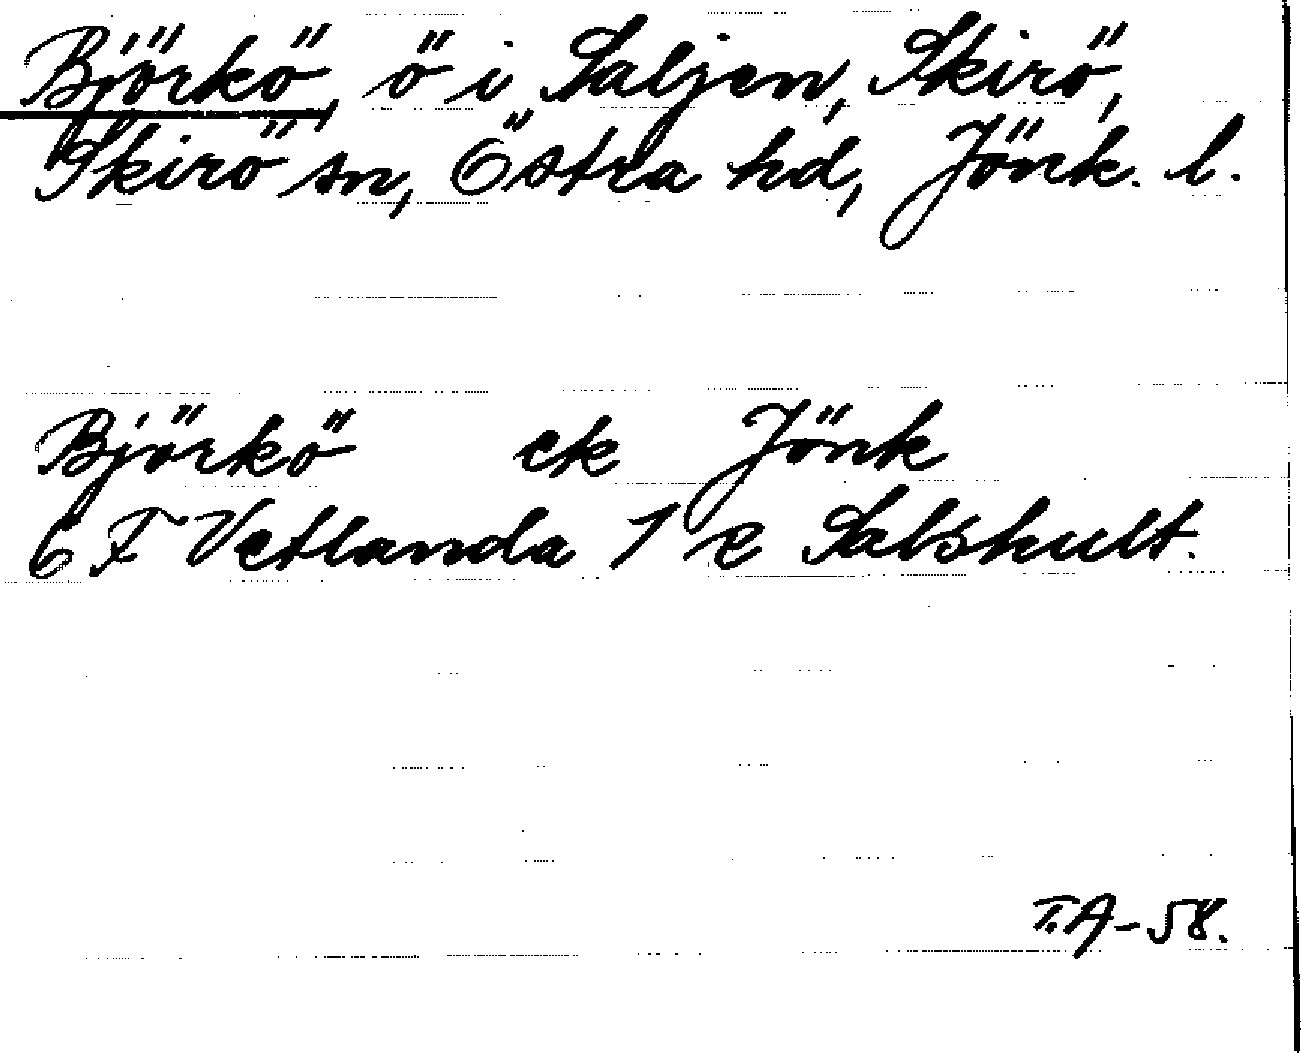 Björkö, ö i Saljen, Skirö,
Skirö sn, Östra hd, Jönk. l.
Björkö ek Jönk
6 F Vetlanda 1 e Salshult.
T.A-58.